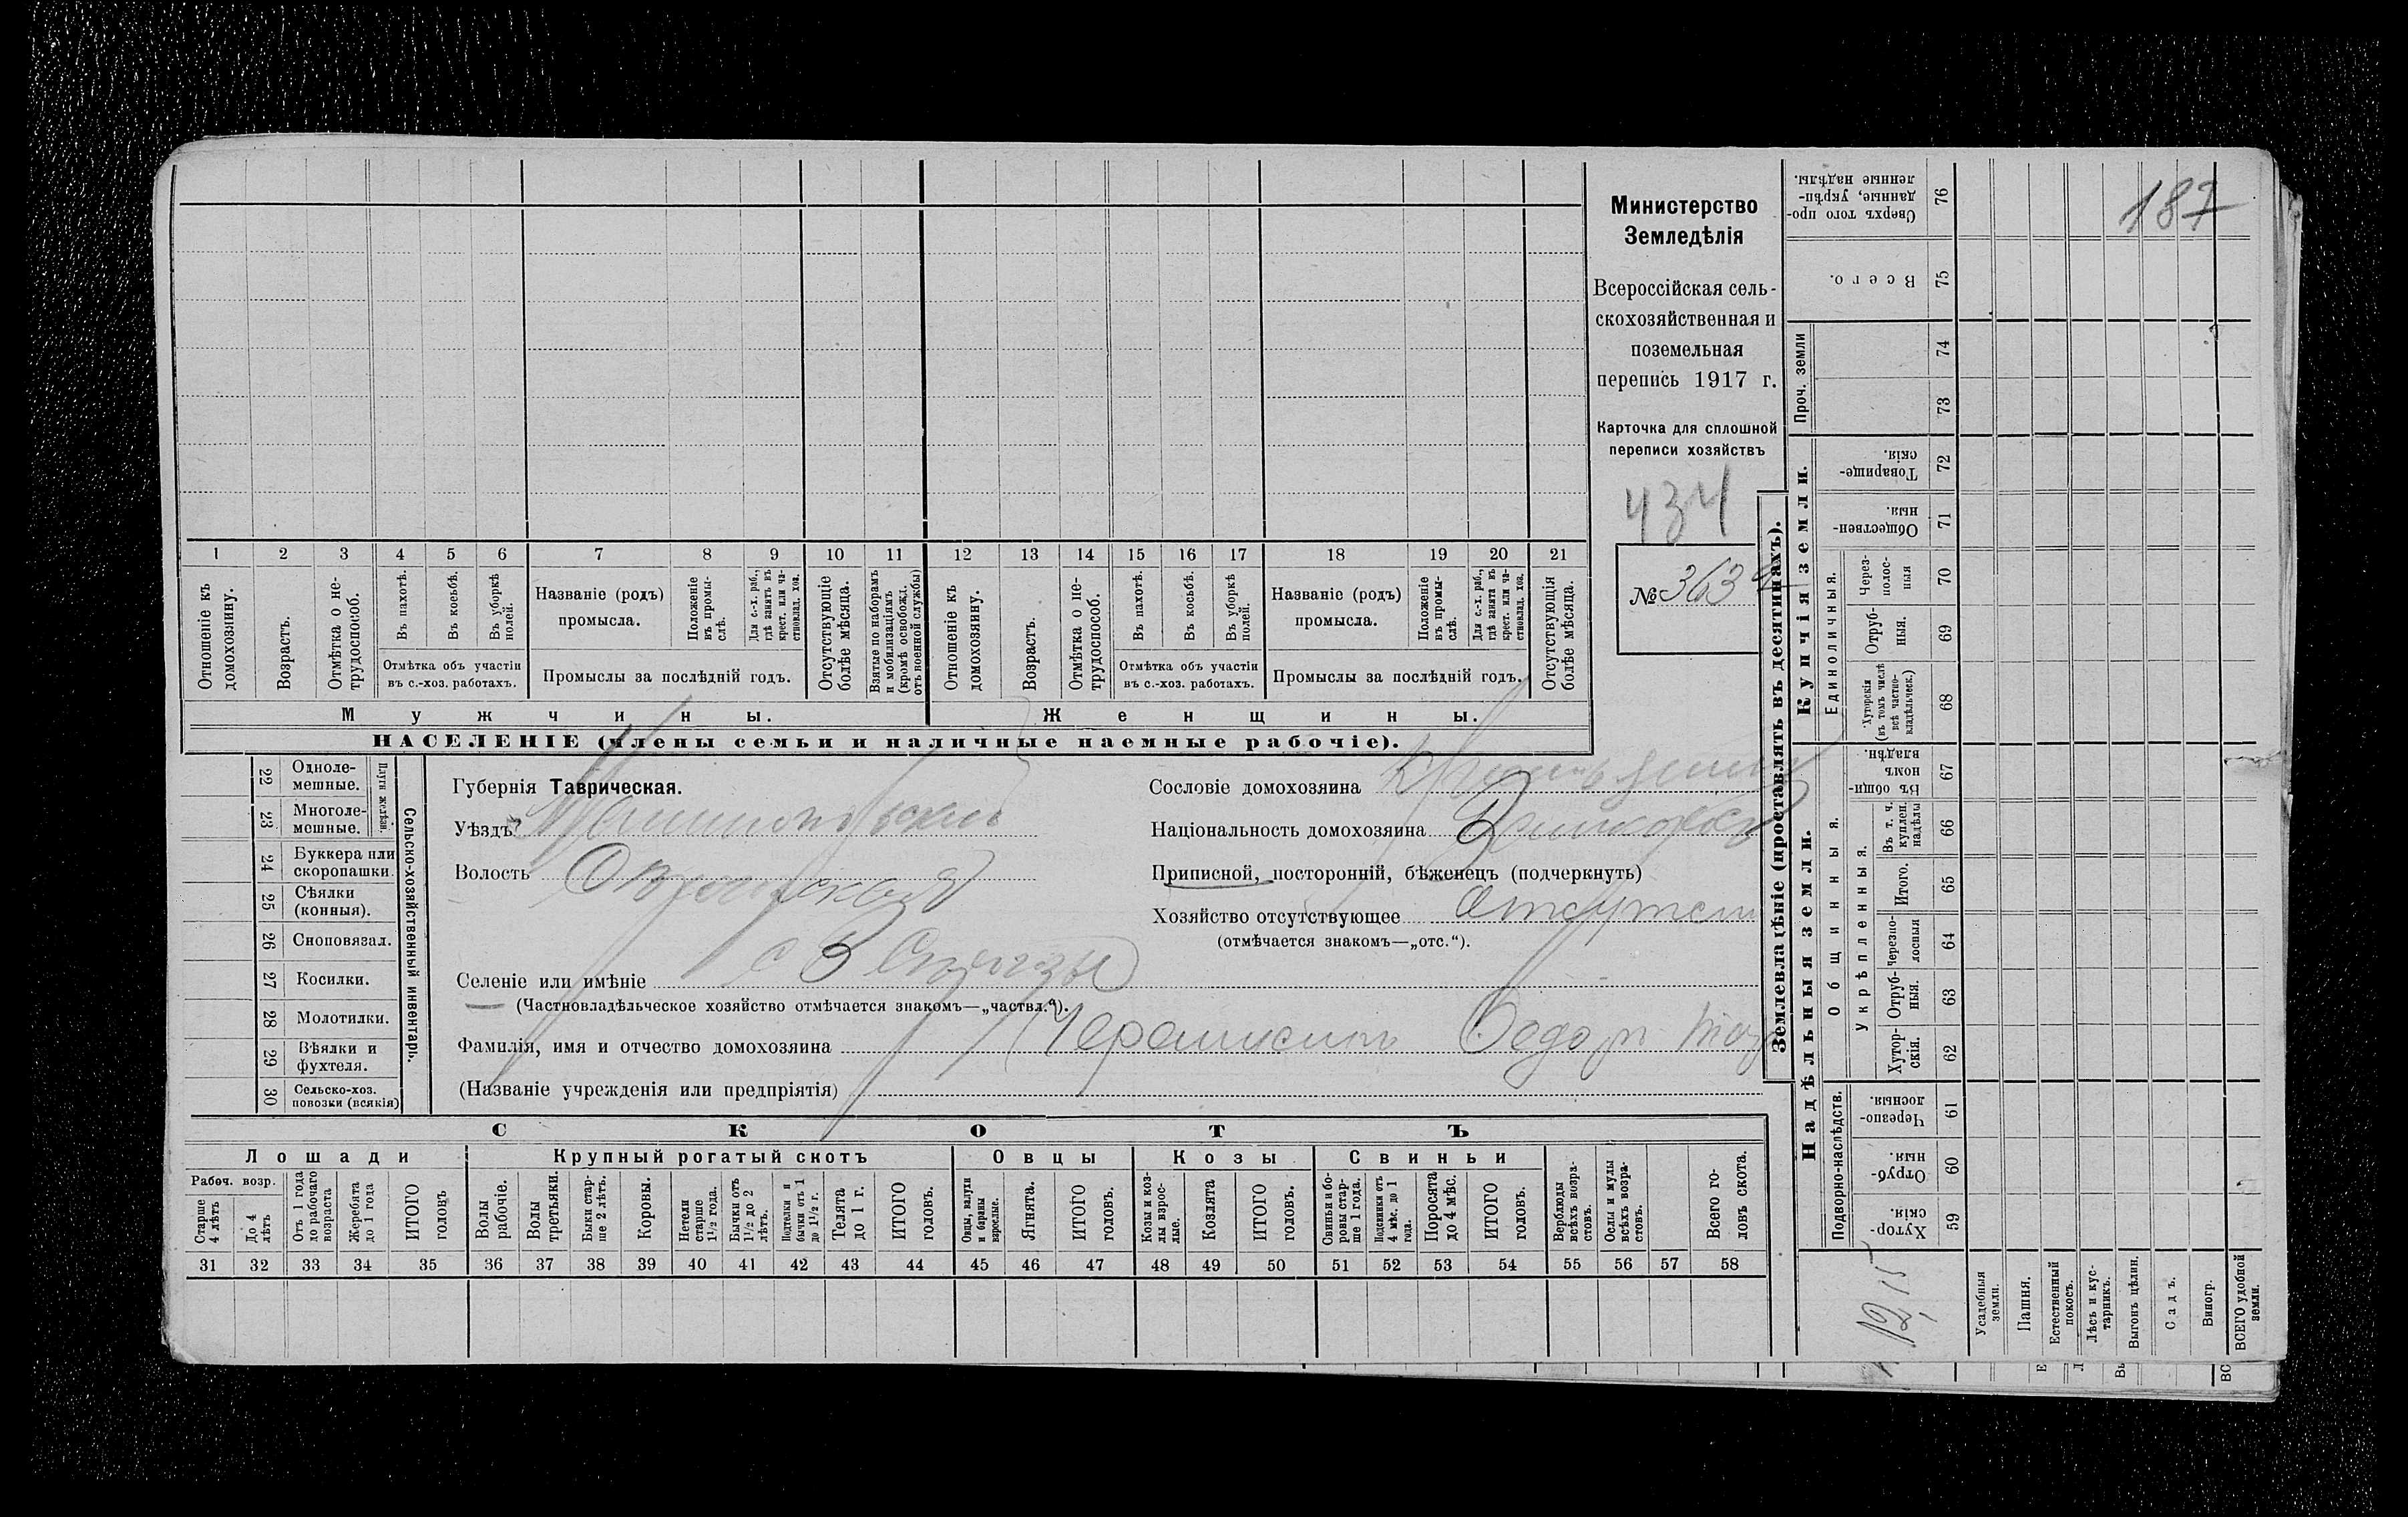 187
Министерство
Земледѣлія
Всероссійская сель-
скохозяйственная и
поземельная
перепись 1917 г.
Карточка для сплошной
переписи хозяйствъ
434
№ 363
1 2 3 4 5 6 7 8 9 10 11 12 13 14 15 16 17 18 19 20 21
Отношеніе къ домохозяину.
Возрастъ.
Отмѣтка о не-трудоспособ.
Въ пахотѣ.
Въ косьбѣ.
Въ уборкѣ полей.
Отмѣтка объ участіи
въ с.-хоз. работахъ.
Названіе (родъ)
промысла.
Положеніе въ промы-слѣ.
Для с.-х. раб., гдѣ занятъ въ крест. или ча-стновлад. хоз.
Промыслы за послѣдній годъ.
Отсутствующіе болѣе мѣсяца.
Взятые по наборамъ и мобилизаціямъ (кромѣ освобожд. отъ военной службы)
Отношеніе къ домохозяину.
Возрастъ.
Отмѣтка о не-трудоспособ.
Въ пахотѣ.
Въ косьбѣ.
Въ уборкѣ полей.
Отмѣтка объ участіи
въ с.-хоз. работахъ.
Названіе (родъ)
промысла.
Положеніе въ промы-слѣ.
Для с.-х. раб., гдѣ занята въ крест. или ча-стновлад. хоз.
Промыслы за послѣдній годъ.
Отсутствующія болѣе мѣсяца.
Мужчины.
Женщины.
НАСЕЛЕНІЕ (члены семьи и наличные наемные рабочіе).
22 Одноле-мешные.
23 Многоле-мешные.
Плуги желѣзн.
24 Буккера или скоропашки.
25 Сѣялки (конныя).
26 Сноповязал.
27 Косилки.
28 Молотилки.
29 Вѣялки и фухтеля.
30 Сельско-хоз. повозки (всякія)
Сельско-хозяйственный инвентарь.
Губернія Таврическая.
Уѣздъ
Волость
Селеніе или имѣніе
(Частновладѣльческое хозяйство отмѣчается знакомъ—„частвл.“).
Фамилія, имя и отчество домохозяина
(Названіе учрежденія или предпріятія)
Сословіе домохозяина
Національность домохозяина
Приписной, посторонній, бѣженецъ (подчеркнуть)
Хозяйство отсутствующее
(отмѣчается знакомъ—„отс.“).
СКОТЪ
Лошади
Крупный рогатый скотъ
Овцы
Козы
Свиньи
Рабоч. возр.
Старше 4 лѣтъ
До 4 лѣтъ
Отъ 1 года до рабочаго возраста
Жеребята до 1 года
ИТОГО головъ
Волы рабочіе.
Волы третьяки.
Быки стар-ше 2 лѣтъ.
Коровы.
Нетели старше 1½ года.
Бычки отъ 1½ до 2 лѣтъ.
Подтелки и бычки отъ 1 до 1½ г.
Телята до 1 г.
ИТОГО головъ.
Овцы, валухи и бараны взрослые.
Ягнята.
ИТОГО головъ.
Козы и коз-лы взрос-лые.
Козлята
ИТОГО головъ.
Свиньи и бо-ровы стар-ше 1 года.
Подсвинки отъ 4 мѣс. до 1 года.
Поросята до 4 мѣс.
ИТОГО головъ.
Верблюды всѣхъ возра-стовъ.
Ослы и мулы всѣхъ возра-стовъ.
Всего го-ловъ скота.
31 32 33 34 35 36 37 38 39 40 41 42 43 44 45 46 47 48 49 50 51 52 53 54 55 56 57 58
Землевладѣніе (проставлять въ десятинахъ).
Купчія земли.
Надѣльныя земли.
Проч. земли
Единоличныя.
Общинныя.
Укрѣпленныя.
Подворно-наслѣдств.
Сверхъ того про-данные, укрѣп-ленные надѣлы. 76
Всего. 75
74
73
Товарище-скія. 72
Обществен-ныя. 71
Через-полос-ныя 70
Отруб-ныя. 69
Хуторскія (въ томъ числѣ всѣ частно-владѣльческ.) 68
Въ общин-номъ владѣн. 67
Въ т. ч. куплен. надѣлы 66
Итого. 65
Черезпо-лосныя 64
Отруб-ныя. 63
Хутор-скія. 62
Черезпо-лосныя. 61
Отруб-ныя. 60
Хутор-скія. 59
Усадебныя земли.
Пашня.
Естественный покосъ.
Лѣсъ и кус-тарникъ.
Выгонъ цѣлин.
Садъ.
Виногр.
ВСЕГО удобной земли.